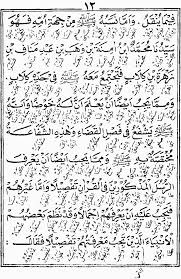 ١٣
فيما ينقل وأما نسبه ﷺ من جهة أمه فهو
سيدنا محمد بن آمنة بنت وهب بن عبد مناف بن
زهرة بن كلاب فتجتمع معه ﷺ في جده كلاب
ومما يجب ايضا ان يعلم أن له حوضا وأنه
ﷺ يشفع في فصل القضاء وهذه الشفاعة
مختصة به ﷺ ومما يجب ايضا ان يعرف
الرسل المذكورين في القرآن تفصيلا وأما غيرهم
فيجب عليه ان يعرفهم إجمالا وقد نظم بعضهم
الأنبياء الذين يجب معرفتهم تفصيلا فقال